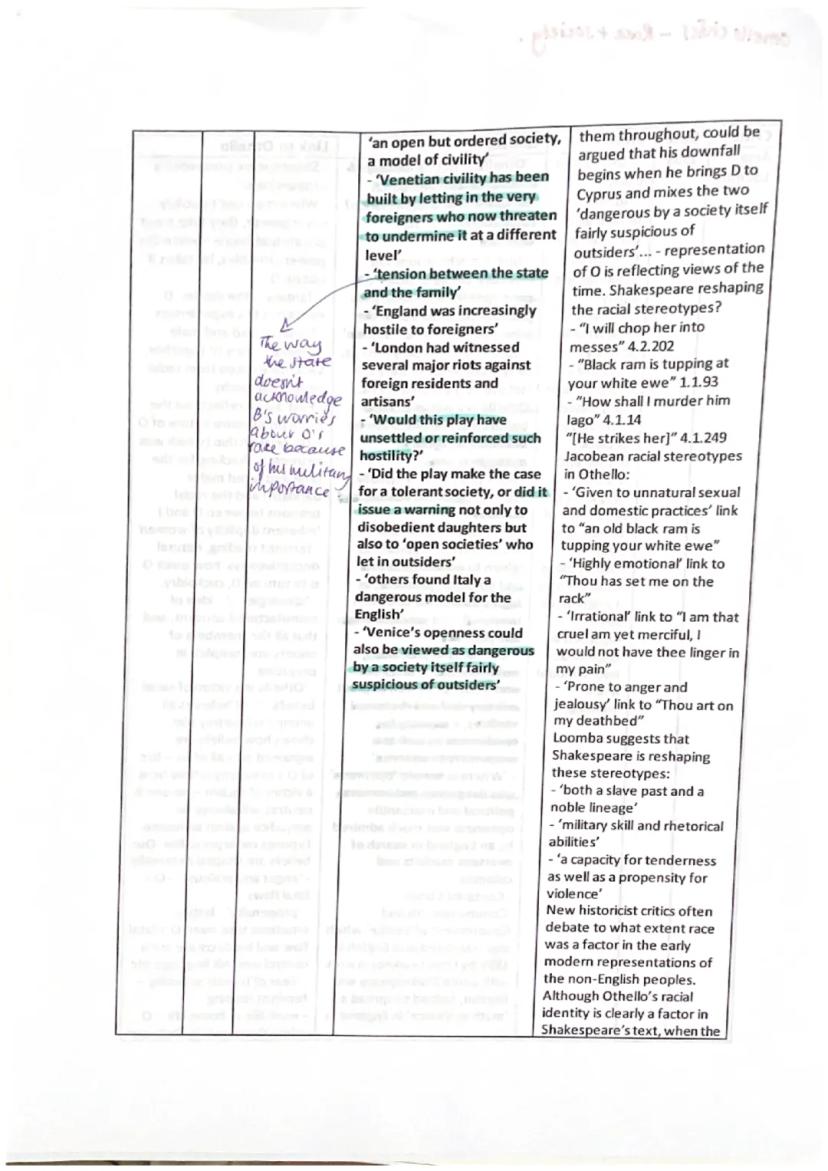 'an open but ordered society,
a model of civility'
- 'Venetian civility has been
built by letting in the very
foreigners who now threaten
to undermine it at a different
level'
- 'tension between the state
and the family'
- 'England was increasingly
hostile to foreigners'
- 'London had witnessed
several major riots against
foreign residents and
artisans'
- 'Would this play have
unsettled or reinforced such
hostility?'
- 'Did the play make the case
for a tolerant society, or did it
issue a warning not only to
disobedient daughters but
also to 'open societies' who
let in outsiders'
- 'others found Italy a
dangerous model for the
English'
- 'Venice's openness could
also be viewed as dangerous
by a society itself fairly
suspicious of outsiders'
The way
the state
doesn't
acknowledge
B's worries
about O's
race because
of his military
importance
them throughout, could be
argued that his downfall
begins when he brings D to
Cyprus and mixes the two
'dangerous by a society itself
fairly suspicious of
outsiders'... - representation
of O is reflecting views of the
time. Shakespeare reshaping
the racial stereotypes?
- "I will chop her into
messes" 4.2.202
- "Black ram is tupping at
your white ewe" 1.1.93
- "How shall I murder him
Iago" 4.1.14
"[He strikes her]" 4.1.249
Jacobean racial stereotypes
in Othello:
- 'Given to unnatural sexual
and domestic practices' link
to "an old black ram is
tupping your white ewe"
- 'Highly emotional' link to
"Thou has set me on the
rack"
- 'Irrational' link to "I am that
cruel am yet merciful, I
would not have thee linger in
my pain"
- 'Prone to anger and
jealousy' link to "Thou art on
my deathbed"
Loomba suggests that
Shakespeare is reshaping
these stereotypes:
- 'both a slave past and a
noble lineage'
- 'military skill and rhetorical
abilities'
- 'a capacity for tenderness
as well as a propensity for
violence'
New historicist critics often
debate to what extent race
was a factor in the early
modern representations of
the non-English peoples.
Although Othello's racial
identity is clearly a factor in
Shakespeare's text, when the